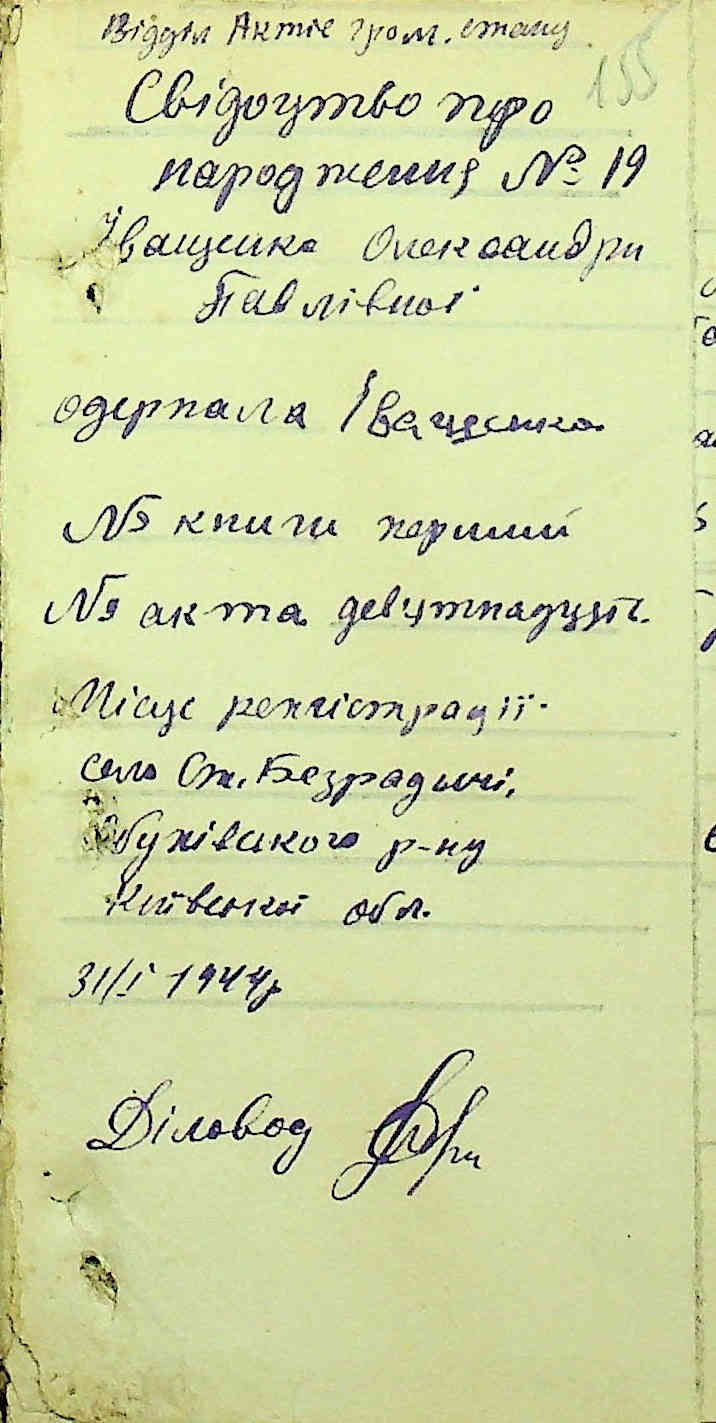 Відділ Актів гром. стану
155
Свідоцтво про
народження № 19
Іващенко Олександри
Павлівної
одержала Іващенко
№ книги перший
№ акта девятнадцять.
Місце регістрації
село Ст. Безрадичі,
Обухівського р-ну
Київської обл.
31/I 1944р
Діловод